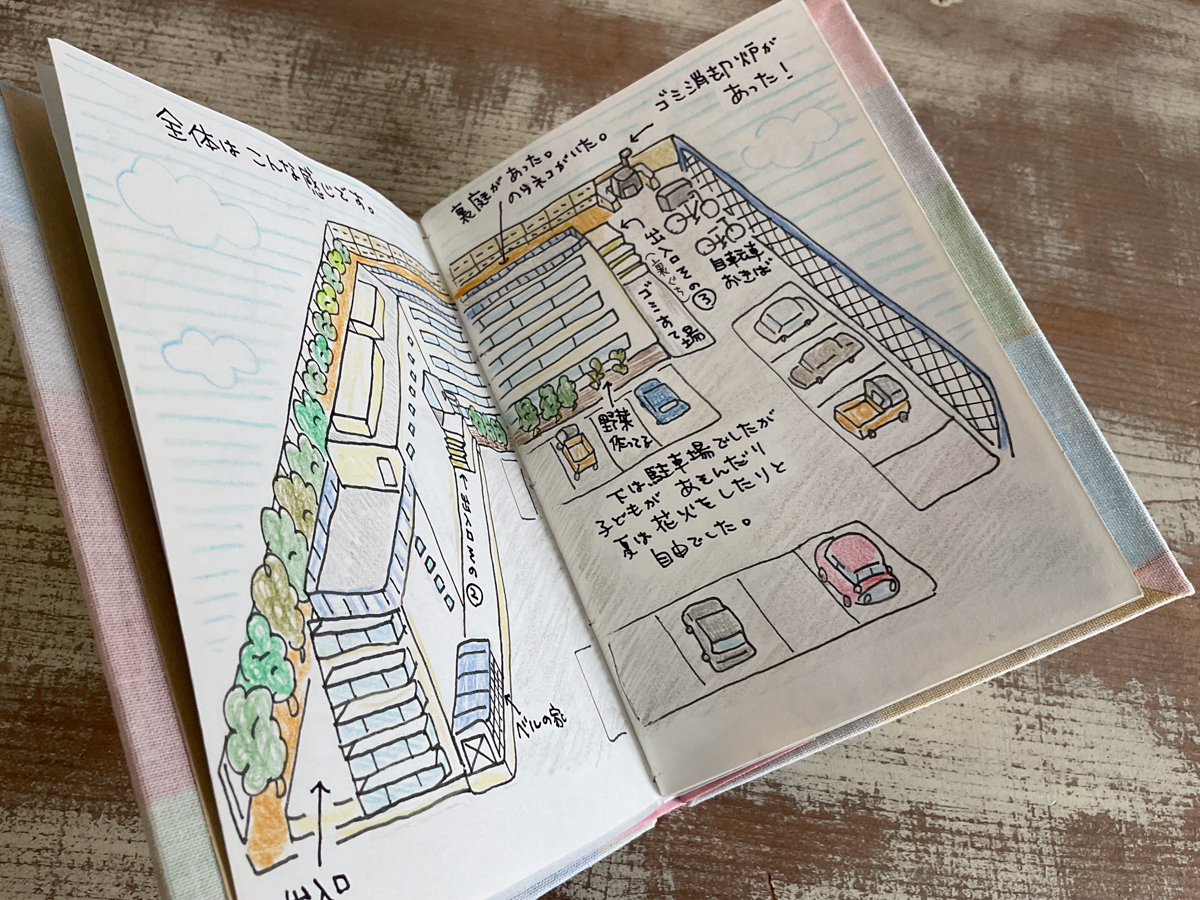 全体は こんな感じです。
出入口その②
ベルの家
ゴミ消却炉が
あった!
裏庭があった。
のラネコがいた。
出入口その③
(裏ぐち)
ゴミすて場
自転車
おきば
野菜
作ってる
下は駐車場でしたが
子どもが あそんだり
夏は花火をしたりと
自由でした。